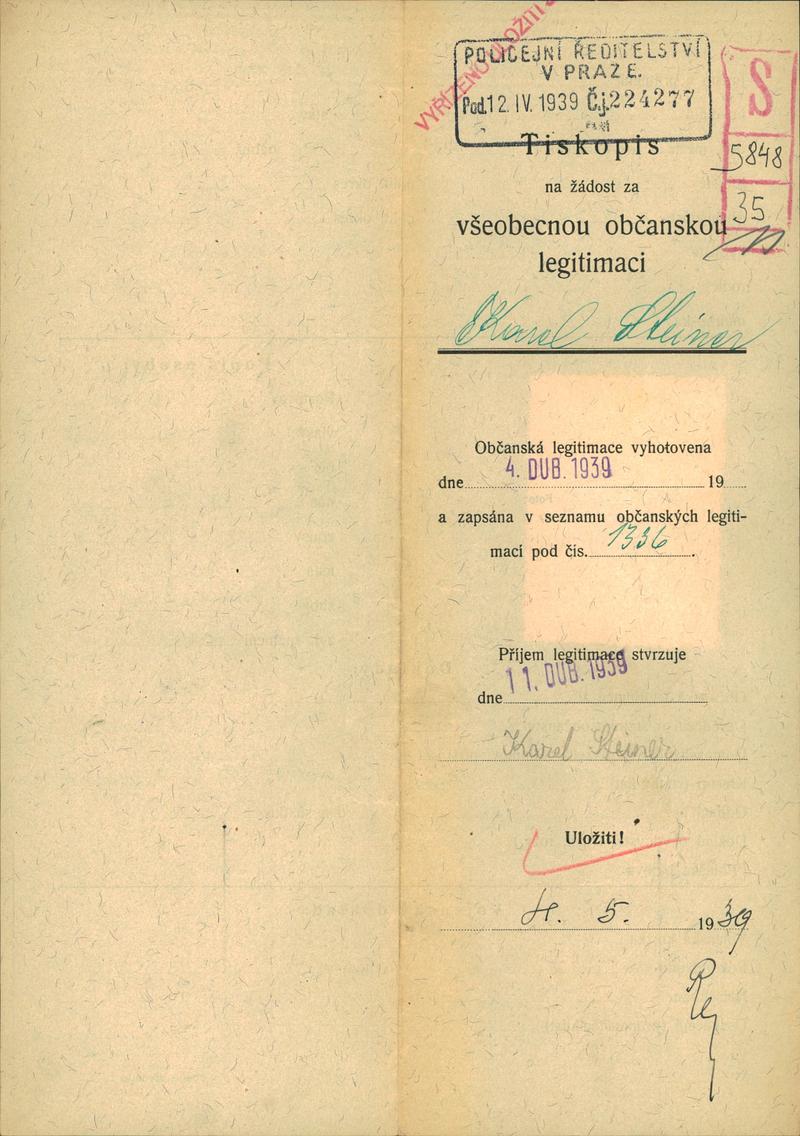 VYŘÍZENO ULOŽITI
POLICEJNÍ ŘEDITELSTVÍ
V PRAZE.
Pod. 12. IV. 1939 Č.j. 224277
S
5848
35
Tiskopis
na žádost za
všeobecnou občanskou
legitimaci
Karel Steiner
Občanská legitimace vyhotovena
dne 4. DUB. 1939 19
a zapsána v seznamu občanských legiti-
mací pod čís. 1336
Příjem legitimace stvrzuje
dne 11. DUB. 1939
Karel Steiner
Uložiti!
4. 5. 1939